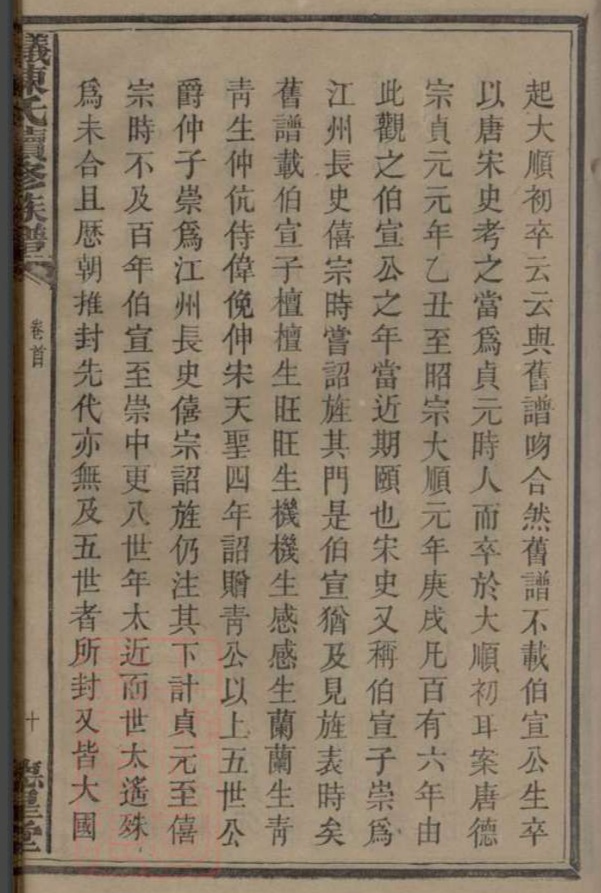 起大順初卒云云與舊譜吻合然舊譜不載伯宣公生卒
以唐宋史考之當爲貞元時人而卒於大順初耳案唐德
宗貞元元年乙丑至昭宗大順元年庚戌凡百有六年由
此觀之伯宣公之年當近期頤也宋史又稱伯宣子崇爲
江州長史僖宗時嘗詔旌其門是伯宣猶及見旌表時矣
舊譜載伯宣子檀檀生旺旺生機機生感感生蘭蘭生青
靑生仲伉侍偉俛伸宋天聖四年詔贈靑公以上五世公
爵仲子崇爲江州長史僖宗詔旌仍注其下計貞元至僖
宗時不及百年伯宣至崇中更八世年太近而世太遙殊
爲未合且歷朝推封先代亦無及五世者所封又皆大國
陳氏續修族譜
卷首
十